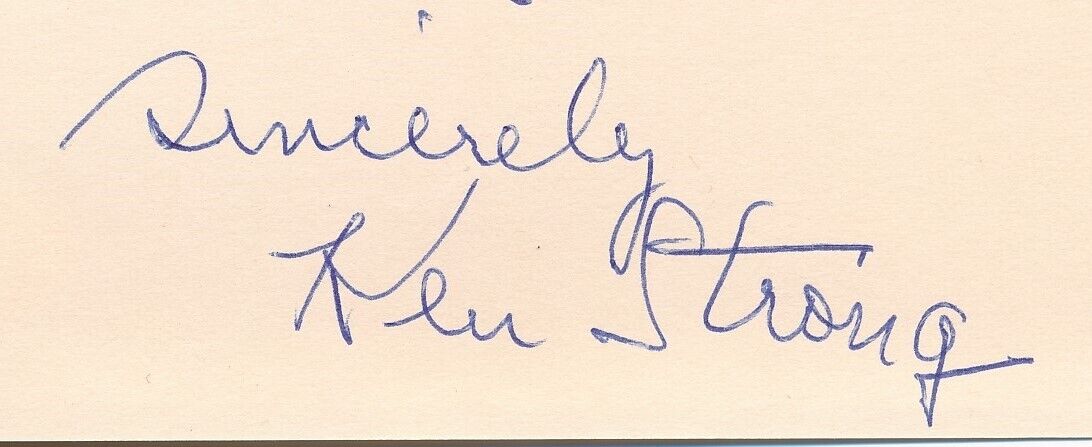 Sincerely
Ken Strong